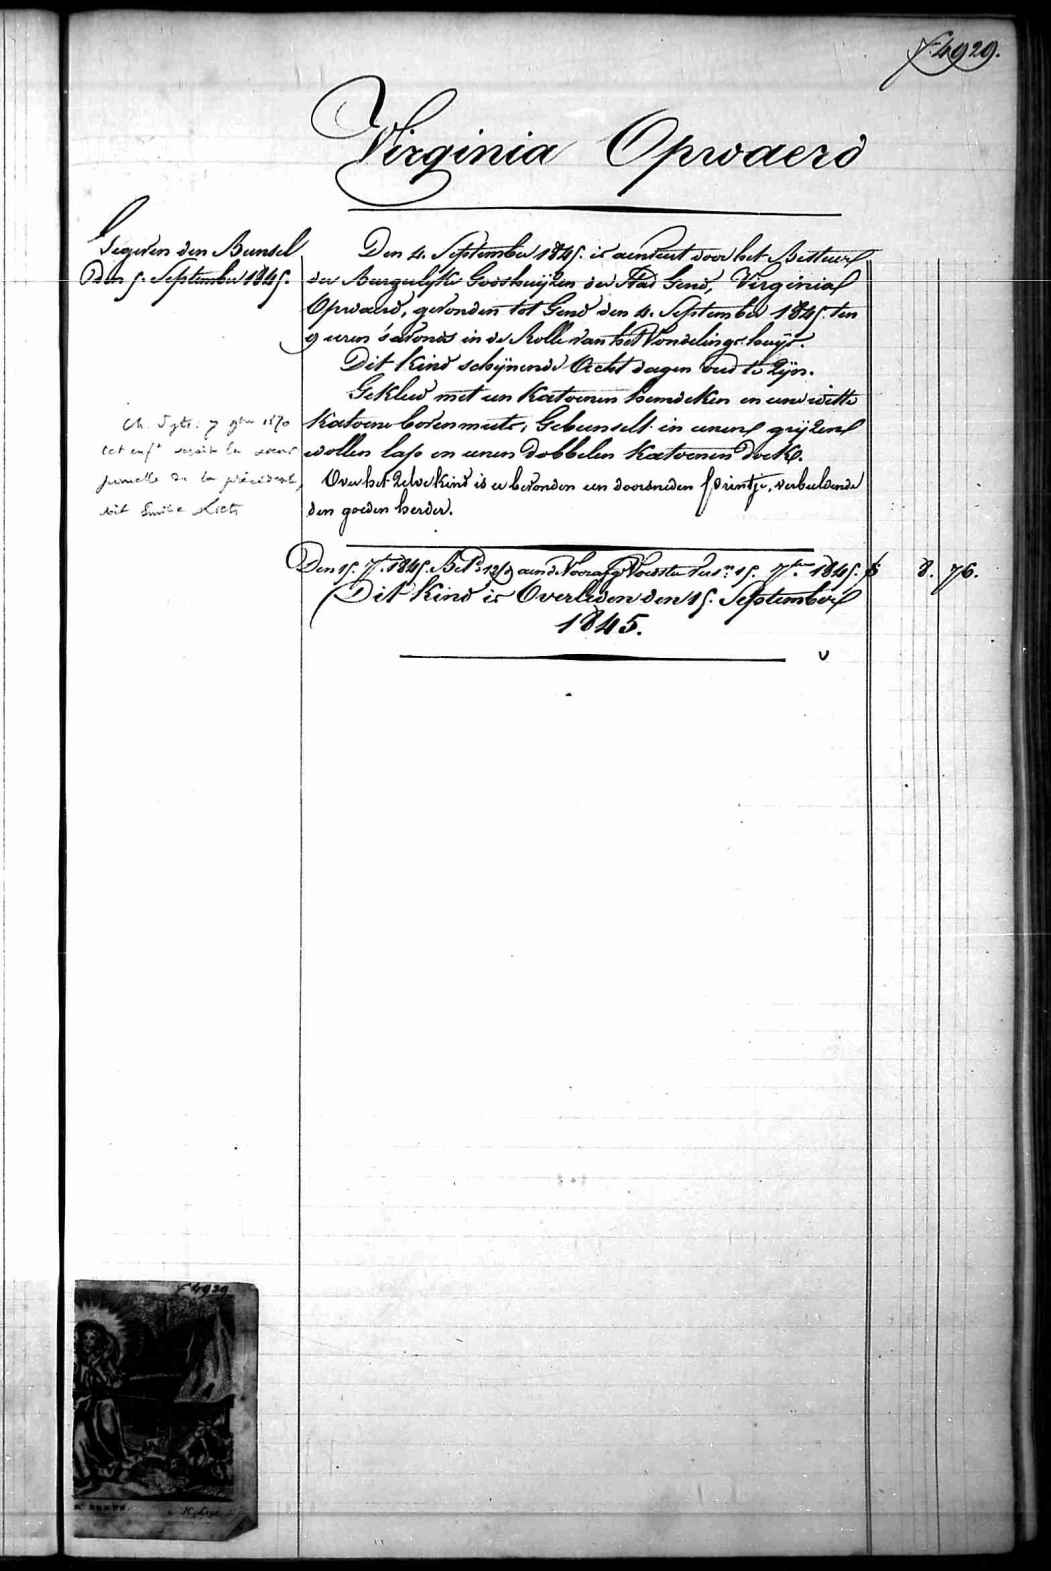 f. 4929.
Virginia Opwaerd
Gegeven den Bunsel
Den 5. September 1845.
Den 4. September 1845. is aenveert door het Bestuur
der Burgerlyke Godshuijzen der Stad Gend, Virginia
Opwaerd, gevonden tot Gend den 4. September 1845. ten
9 uren s'avonds in de Rolle van het Vondelingshuijs.
Dit kind schijnende Acht dagen oud te Zijn.
Gekleed met een Katoenen hemdeken en eene witte
Katoene bovenmuts, Gebunselt in eenen grijzen
wollen laps en eenen dobbelen Katoenen Doek.
Over het Zelve kind is er bevonden een doorsneden printje, verbeeldende
den goeden herder.
7 1870
cet enfᵗ serait la sœur
jumelle de la précédente,
soit Emilie
Den 15. 7ᵇʳ 1845. aen de Voedster 15. 7ᵇʳᵉ 1845. 8. 76.
Dit Kind is Overleden den 15. September
1845.
f 4929